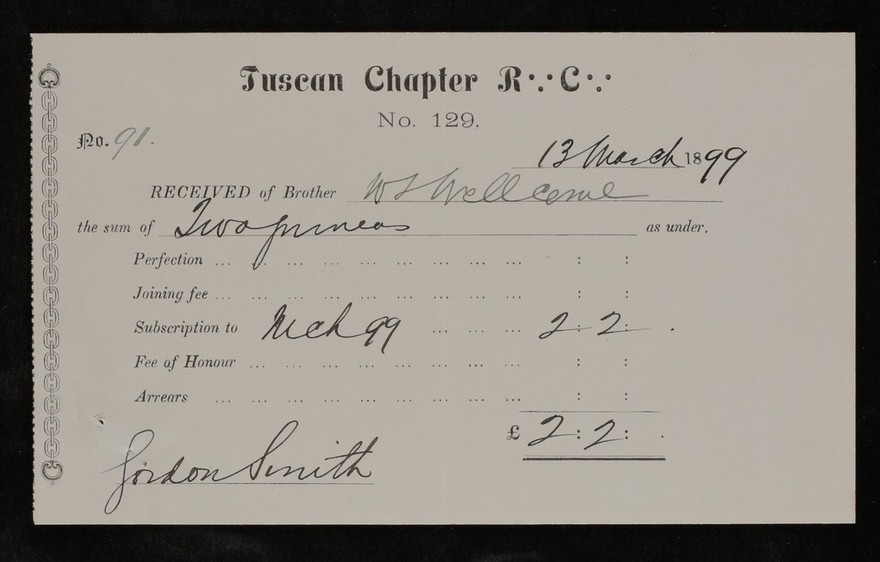 Tuscan Chapter R∵C∵
No. 129.
No. 91.
13 March 1899
RECEIVED of Brother W S Wellcome
the sum of Two guineas as under.
Perfection ... ... ... ... ... ... ... ... ... : :
Joining fee ... ... ... ... ... ... ... ... ... : :
Subscription to Mch 99 ... ... ... 2 : 2 : .
Fee of Honour ... ... ... ... ... ... ... ... : :
Arrears ... ... ... ... ... ... ... ... ... : :
£ 2 : 2 : .
Gordon Smith